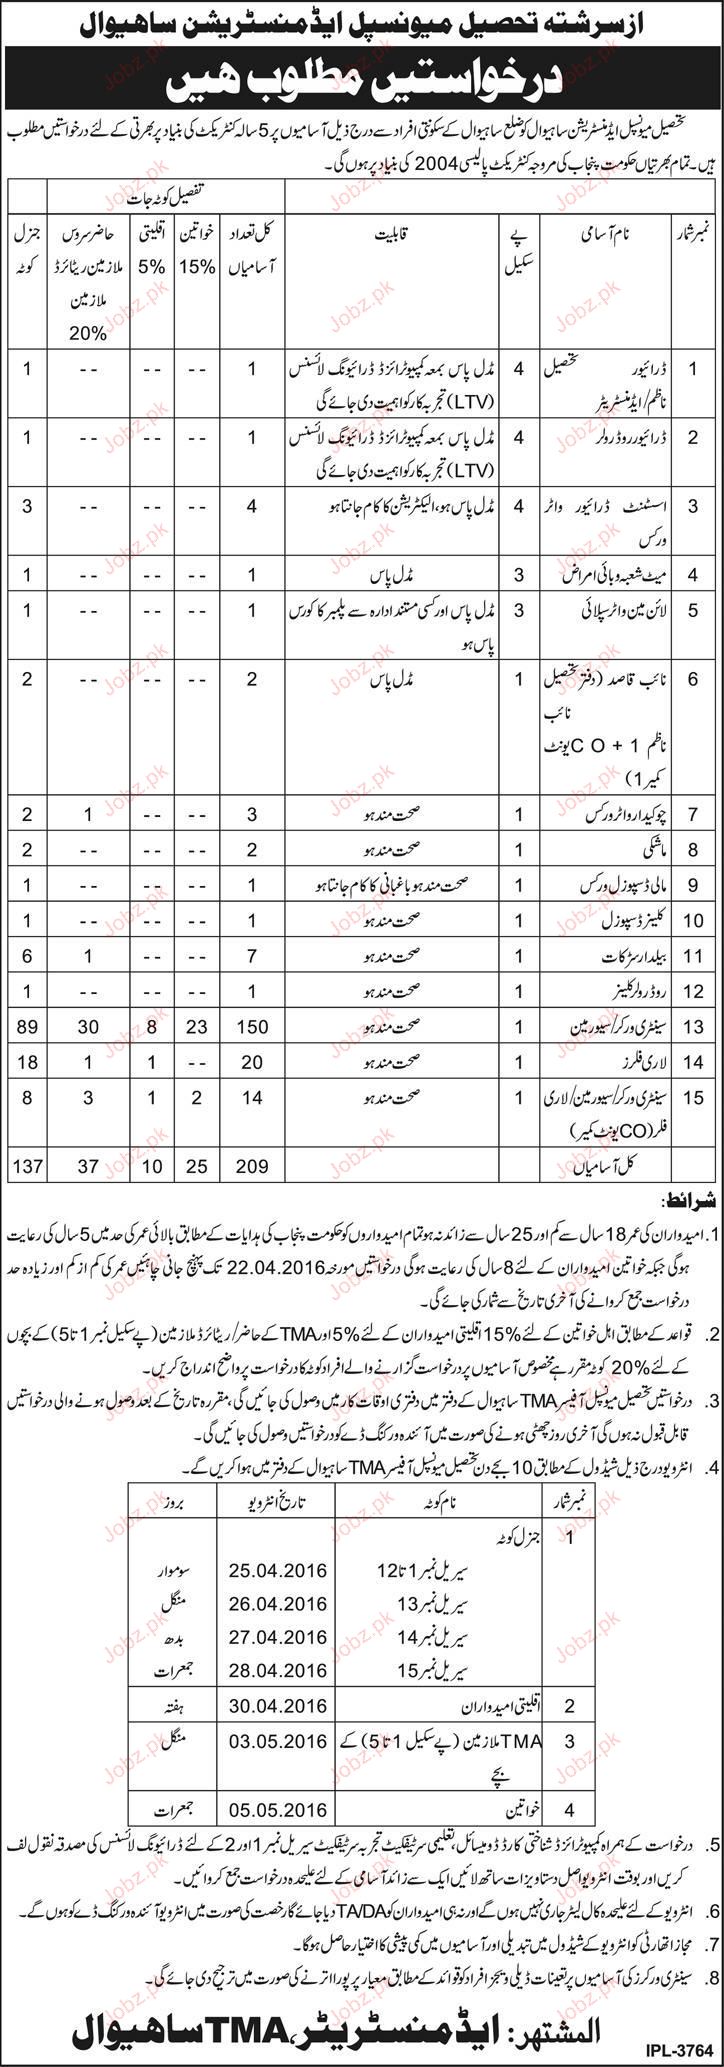 از سرشتہ تحصیل میونسپل ایڈمنسٹریشن ساھیوال
درخواستیں مطلوب ھیں
تحصیل میونسپل ایڈمنسٹریشن ساہیوال کو ضلع ساہیوال کے سکونتی افراد سے درج ذیل آسامیوں پر 5 سالہ کنٹریکٹ کی بنیاد پر بھرتی کے لئے درخواستیں مطلوب
ہیں۔ تمام بھرتیاں حکومت پنجاب کی مروجہ کنٹریکٹ پالیسی 2004 کی بنیاد پر ہوں گی۔
تفصیل کوٹہ جات
نمبر شمار | نام آسامی | پے سکیل | قابلیت | کل تعداد آسامیاں | خواتین 15% | اقلیتی 5% | حاضر سروس ملازمین ریٹائرڈ ملازمین 20% | جنرل کوٹہ
1 | ڈرائیور تحصیل ناظم/ایڈمنسٹریٹر | 4 | مڈل پاس بمعہ کمپیوٹرائزڈ ڈرائیونگ لائسنس (LTV) تجربہ کار کو اہمیت دی جائے گی | 1 | -- | -- | -- | 1
2 | ڈرائیور روڈ رولر | 4 | مڈل پاس بمعہ کمپیوٹرائزڈ ڈرائیونگ لائسنس (LTV) تجربہ کار کو اہمیت دی جائے گی | 1 | -- | -- | -- | 1
3 | اسسٹنٹ ڈرائیور واٹر ورکس | 4 | مڈل پاس ہو، الیکٹریشن کا کام جانتا ہو | 4 | -- | -- | -- | 3
4 | میٹ شعبہ وبائی امراض | 3 | مڈل پاس | 1 | -- | -- | -- | 1
5 | لائن مین واٹر سپلائی | 3 | مڈل پاس اور کسی مستند ادارہ سے پلمبر کا کورس پاس ہو | 1 | -- | -- | -- | 1
6 | نائب قاصد (دفتر تحصیل نائب ناظم 1 + CO یونٹ کمیر 1) | 1 | مڈل پاس | 2 | -- | -- | -- | 2
7 | چوکیدار واٹر ورکس | 1 | صحت مند ہو | 3 | -- | -- | 1 | 2
8 | ماشکی | 1 | صحت مند ہو | 2 | -- | -- | -- | 2
9 | مالی ڈسپوزل ورکس | 1 | صحت مند ہو باغبانی کا کام جانتا ہو | 1 | -- | -- | -- | 1
10 | کلینر ڈسپوزل | 1 | صحت مند ہو | 1 | -- | -- | -- | 1
11 | بیلدار سڑکات | 1 | صحت مند ہو | 7 | -- | -- | 1 | 6
12 | روڈ رولر کلینر | 1 | صحت مند ہو | 1 | -- | -- | -- | 1
13 | سینٹری ورکر/سیور مین | 1 | صحت مند ہو | 150 | 23 | 8 | 30 | 89
14 | لاری فلرز | 1 | صحت مند ہو | 20 | -- | 1 | 1 | 18
15 | سینٹری ورکر/سیور مین/لاری فلر (CO یونٹ کمیر) | 1 | صحت مند ہو | 14 | 2 | 1 | 3 | 8
کل آسامیاں | 209 | 25 | 10 | 37 | 137
شرائط:
1. امیدواران کی عمر 18 سال سے کم اور 25 سال سے زائد نہ ہو تمام امیدواروں کو حکومت پنجاب کی ہدایات کے مطابق بالائی عمر کی حد میں 5 سال کی رعایت
ہوگی جبکہ خواتین امیدواران کے لئے 8 سال کی رعایت ہوگی درخواستیں مورخہ 22.04.2016 تک پہنچ جانی چاہئیں عمر کی کم از کم اور زیادہ حد
درخواست جمع کروانے کی آخری تاریخ سے شمار کی جائے گی۔
2. قواعد کے مطابق اہل خواتین کے لئے 15% اقلیتی امیدواران کے لئے 5% اور TMA کے حاضر/ریٹائرڈ ملازمین (پے سکیل نمبر 1 تا 5) کے بچوں
کے لئے 20% کوٹہ مقرر ہے مخصوص آسامیوں پر درخواست گزارنے والے افراد کوٹہ کا درخواست پر واضح اندراج کریں۔
3. درخواستیں تحصیل میونسپل آفیسر TMA ساہیوال کے دفتر میں دفتری اوقات کار میں وصول کی جائیں گی، مقررہ تاریخ کے بعد وصول ہونے والی درخواستیں
قابل قبول نہ ہوں گی آخری روز چھٹی ہونے کی صورت میں آئندہ ورکنگ ڈے کو درخواستیں وصول کی جائیں گی۔
4. انٹرویو درج ذیل شیڈول کے مطابق 10 بجے دن تحصیل میونسپل آفیسر TMA ساہیوال کے دفتر میں ہوا کریں گے۔
نمبر شمار | نام کوٹہ | تاریخ انٹرویو | بروز
1 | جنرل کوٹہ
سیریل نمبر 1 تا 12 | 25.04.2016 | سوموار
سیریل نمبر 13 | 26.04.2016 | منگل
سیریل نمبر 14 | 27.04.2016 | بدھ
سیریل نمبر 15 | 28.04.2016 | جمعرات
2 | اقلیتی امیدواران | 30.04.2016 | ہفتہ
3 | TMA ملازمین (پے سکیل 1 تا 5) کے بچے | 03.05.2016 | منگل
4 | خواتین | 05.05.2016 | جمعرات
5. درخواست کے ہمراہ کمپیوٹرائزڈ شناختی کارڈ ڈومیسائل، تعلیمی سرٹیفکیٹ تجربہ سرٹیفکیٹ سیریل نمبر 1 اور 2 کے لئے ڈرائیونگ لائسنس کی مصدقہ نقول لف
کریں اور بوقت انٹرویو اصل دستاویزات ساتھ لائیں ایک سے زائد آسامی کے لئے علیحدہ درخواست جمع کروائیں۔
6. انٹرویو کے لئے علیحدہ کال لیٹر جاری نہیں ہوں گے اور نہ ہی امیدواران کو TA/DA دیا جائے گا رخصت کی صورت میں انٹرویو آئندہ ورکنگ ڈے کو ہوں گے۔
7. مجاز اتھارٹی کو انٹرویو کے شیڈول میں تبدیلی اور آسامیوں میں کمی پیشی کا اختیار حاصل ہوگا۔
8. سینٹری ورکرز کی آسامیوں پر تعینات ڈیلی ویجز افراد کو قوائد کے مطابق معیار پر پورا اترنے کی صورت میں ترجیح دی جائے گی۔
المشتھر: ایڈمنسٹریٹر، TMA ساھیوال
IPL-3764